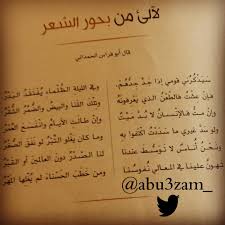 لآلئ من بحور الشعر
قال أبو فراس الحمداني
سيذكرني قومي إذا جد جدهم وفي الليلة الظلماء يفتقد البدر
فإن عشت فالطعن الذي يعرفونه وتلك القنا والبيض والضمر الشقر
وإن مت فالإنسان لا بد ميت وإن طالت الأيام وانفسح العمر
ولو سد غيري ما سددت اكتفوا به وما كان يغلو التبر لو نفق الصفر
ونحن أناس لا توسط عندنا لنا الصدر دون العالمين أو القبر
تهون علينا في المعالي نفوسنا ومن خطب الحسناء لم يغلها المهر
@abu3zam_